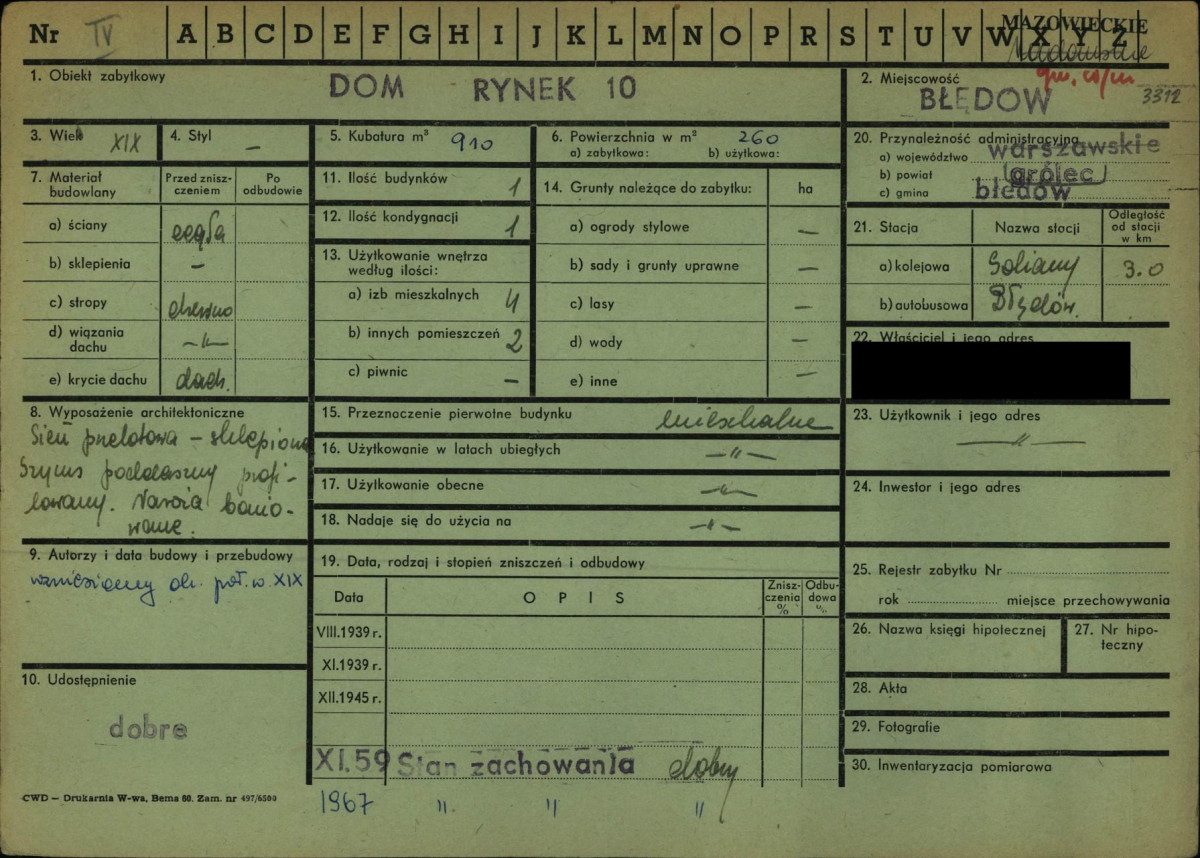 Nr IV A B C D E F G H I J K L M N O P R S T U V W X Y Z
MAZOWIECKIE
1. Obiekt zabytkowy
DOM RYNEK 10
2. Miejscowość
BŁĘDOW 3312
3. Wiek XIX
4. Styl —
5. Kubatura m³ 910
6. Powierzchnia w m² 260
a) zabytkowa: b) użytkowa:
7. Materiał budowlany
Przed zniszczeniem
Po odbudowie
a) ściany cegła
b) sklepienia —
c) stropy drewno
d) wiązania dachu —"—
e) krycie dachu dach.
8. Wyposażenie architektoniczne
Sień przelotowa — sklepiona
Gzyms poddaszny profi-
lowany. Naroża bonio-
wane.
9. Autorzy i data budowy i przebudowy
wzniesiony ok. poł. w. XIX
10. Udostępnienie
dobre
11. Ilość budynków 1
12. Ilość kondygnacji 1
13. Użytkowanie wnętrza według ilości:
a) izb mieszkalnych 4
b) innych pomieszczeń 2
c) piwnic —
14. Grunty należące do zabytku: ha
a) ogrody stylowe —
b) sady i grunty uprawne —
c) lasy —
d) wody —
e) inne —
15. Przeznaczenie pierwotne budynku mieszkalne
16. Użytkowanie w latach ubiegłych —"—
17. Użytkowanie obecne —"—
18. Nadaje się do użycia na —"—
19. Data, rodzaj i stopień zniszczeń i odbudowy
Data OPIS Zniszczenia % Odbudowa %
VIII.1939 r.
XI.1939 r.
XII.1945 r.
XI.59 Stan zachowania dobry
1967 " " "
20. Przynależność administracyjna
a) województwo warszawskie
b) powiat grójec
c) gmina błedów
21. Stacja
Nazwa stacji
Odległość od stacji w km
a) kolejowa Goliany 3.0
b) autobusowa Błędów.
22. Właściciel i jego adres
23. Użytkownik i jego adres
—"—
24. Inwestor i jego adres
25. Rejestr zabytku Nr
rok miejsce przechowywania
26. Nazwa księgi hipotecznej
27. Nr hipoteczny
28. Akta
29. Fotografie
30. Inwentaryzacja pomiarowa
CWD — Drukarnia W-wa, Bema 60. Zam. nr 497/6500